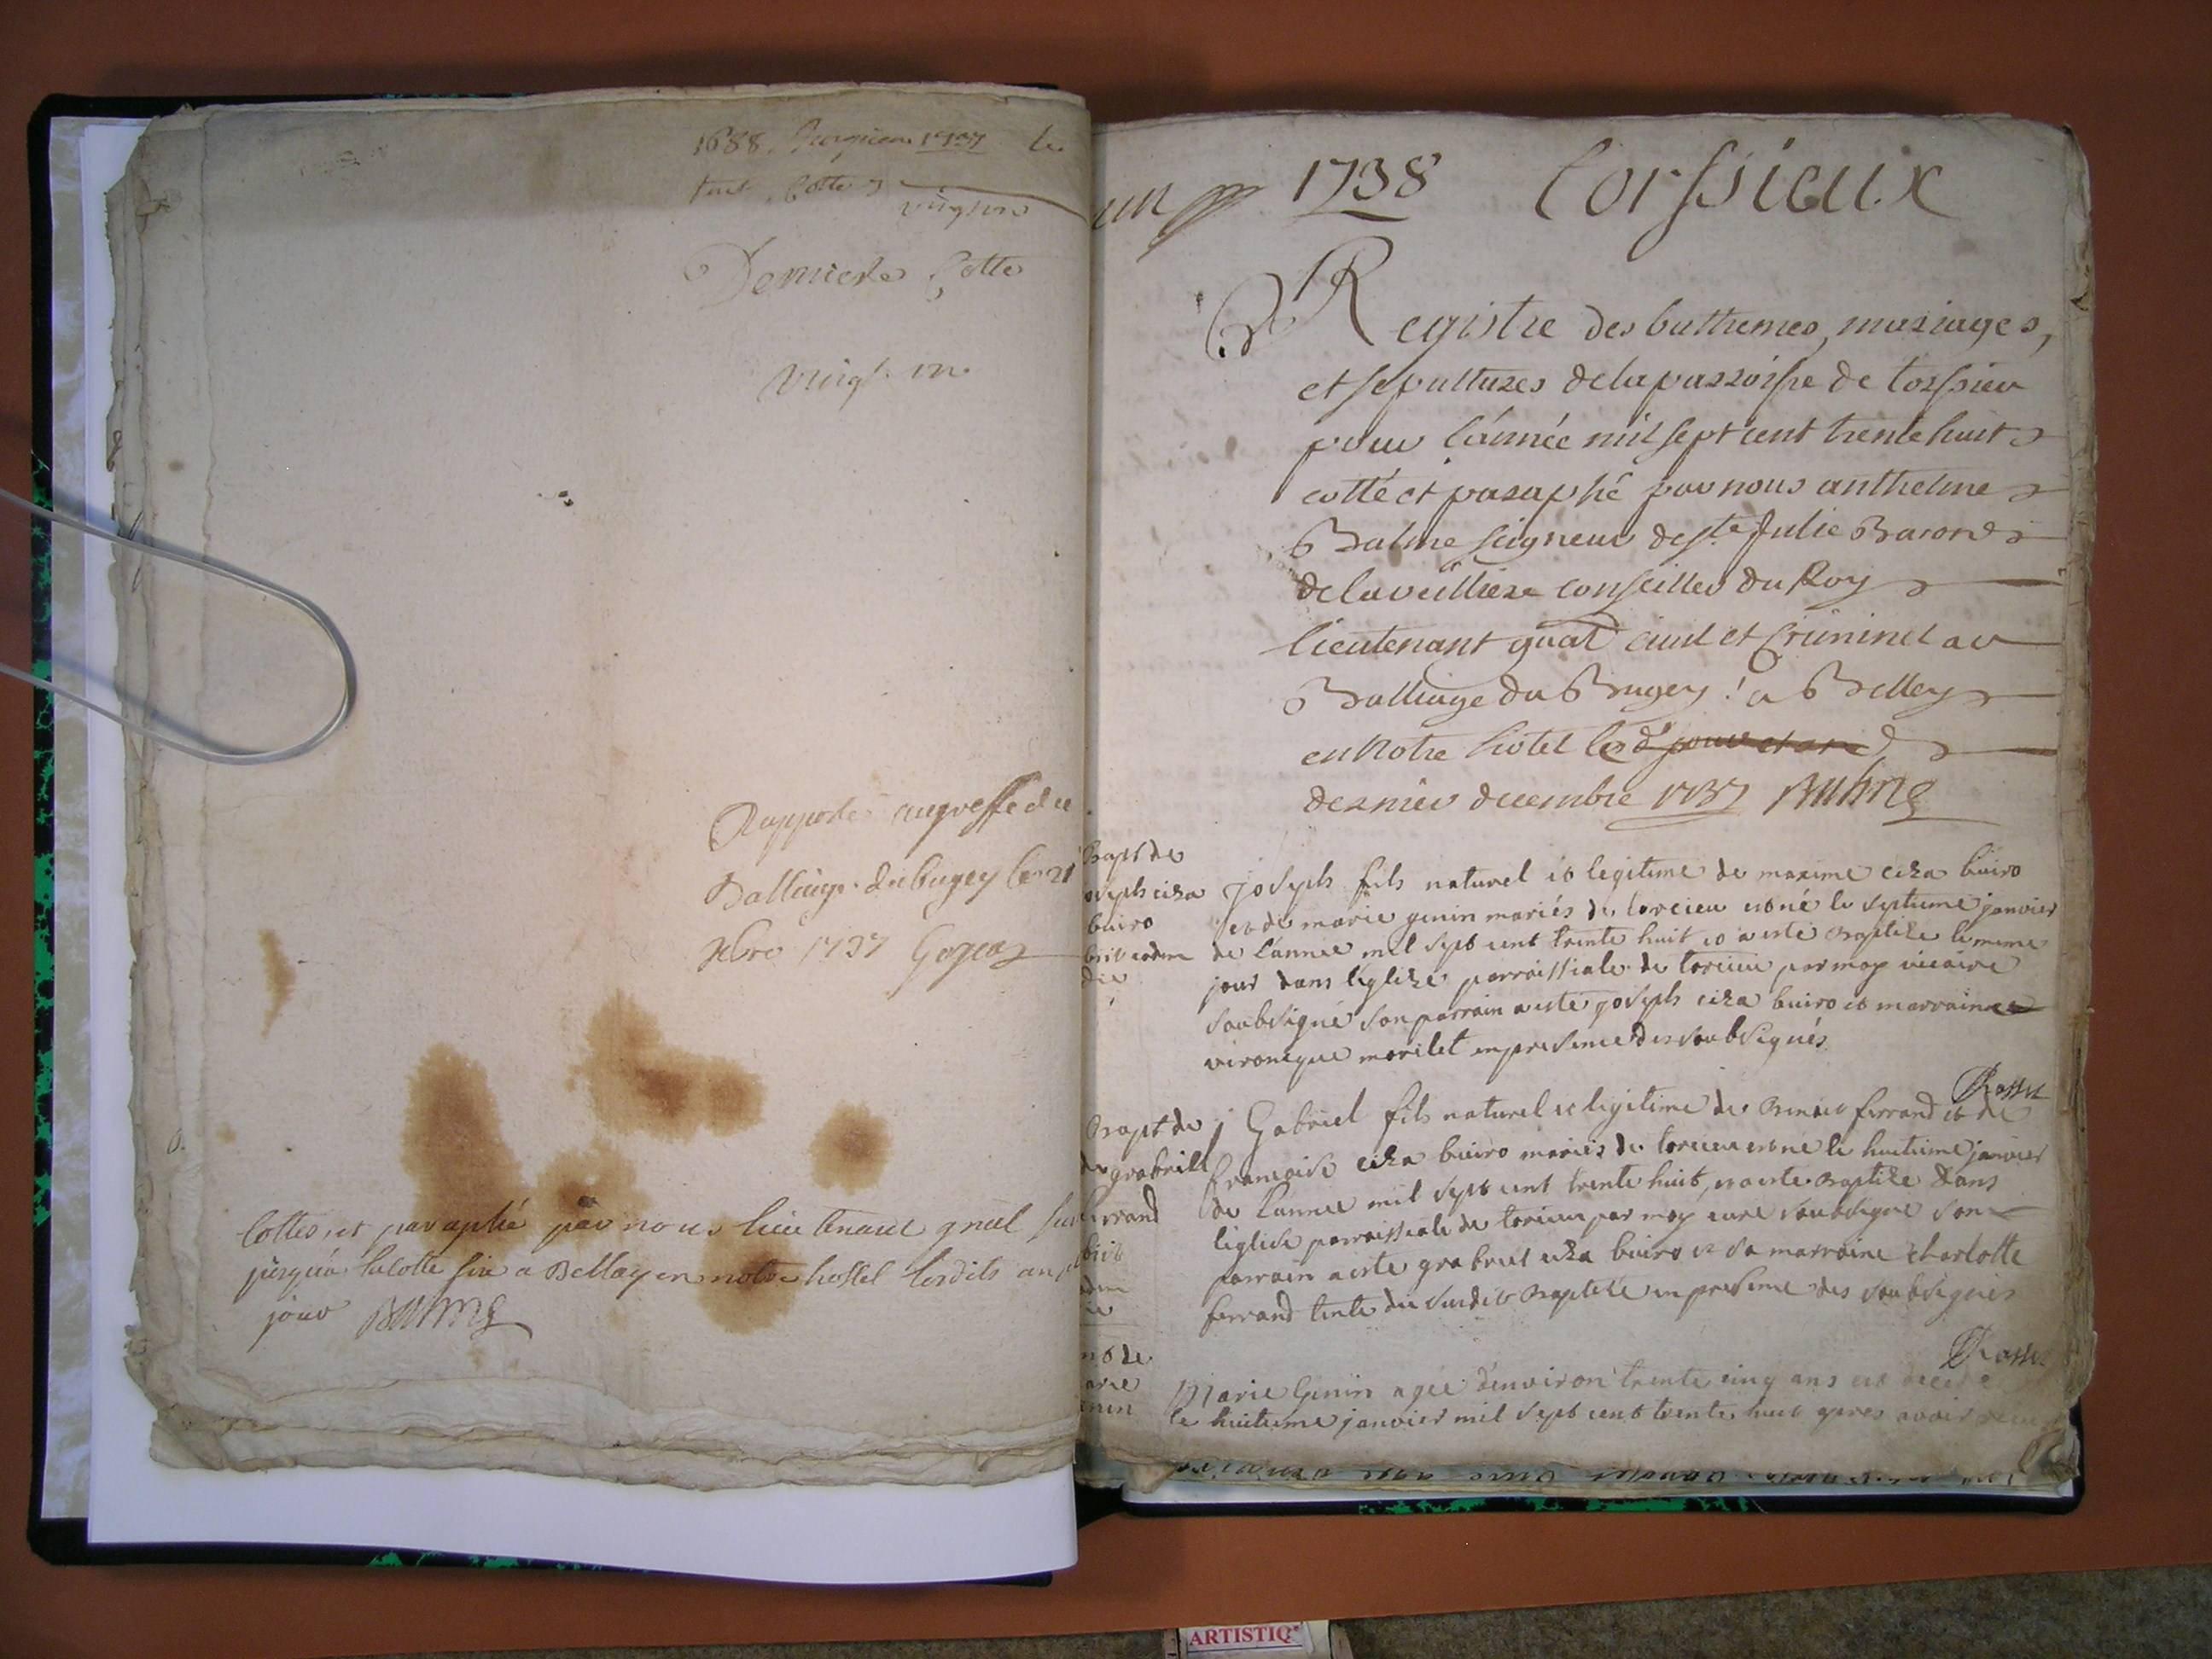 1688. Jusquien 1737
Derniere Cotte
vingt. un.
Rapporté augreffe du
Balliage du bugey le 21
Xbre 1737
Cottes, et paraphé par nous lieutenant gnal
jusqu'à la cotte six a Bellay en notre hostel lesdits an
jour Balme
un 1738 Torssieux
Registre des battemes, mariages,
et sepultures de la parroisse de torssieu
pour l'année mil sept cent trente huit
cotté et paraphé par nous anthelme
Balme seigneur de ste Julie Baron
de la veilliere conseiller du Roy
lieutenant gnâl civil et Criminel au
Balliage du Bugey a Belley
en Notre hôtel les
dernier decembre 1737 Balme
Bapt de
oseph ciza
buiro
Joseph fils naturel et legitime de maxime ciza buiro
et de marie genin mariés de torcieu est né le septieme janvier
de l'année mil sept cent trente huit et a esté Baptizé le meme
jour dans l'eglize parroissiale de torcieu par moy vicaire
soubsigné son parrain a esté joseph ciza buiro et marraine
veronique morilet en presence des soubsignés
Rosset
Bapt de
de grabriel
ferrand
Gabriel fils naturel et legitime de Benoit ferrand et de
francoise ciza buiro mariés de torcieu est né le huitieme janvier
de l'annee mil sept cent trente huit, et a esté Baptizé dans
l'eglise parroissiale de torcieu par moy curé soubsigné son
parrain a esté grabriel ciza buiro et sa marraine charlotte
ferrand tente du susdit Baptizé en presence des soubsignés
Rosset
arie
enin
Marie Genin agée d'environ trente cinq ans est decedé
le huitieme janvier mil sept cent trente huit apres avoir
ARTISTIQ